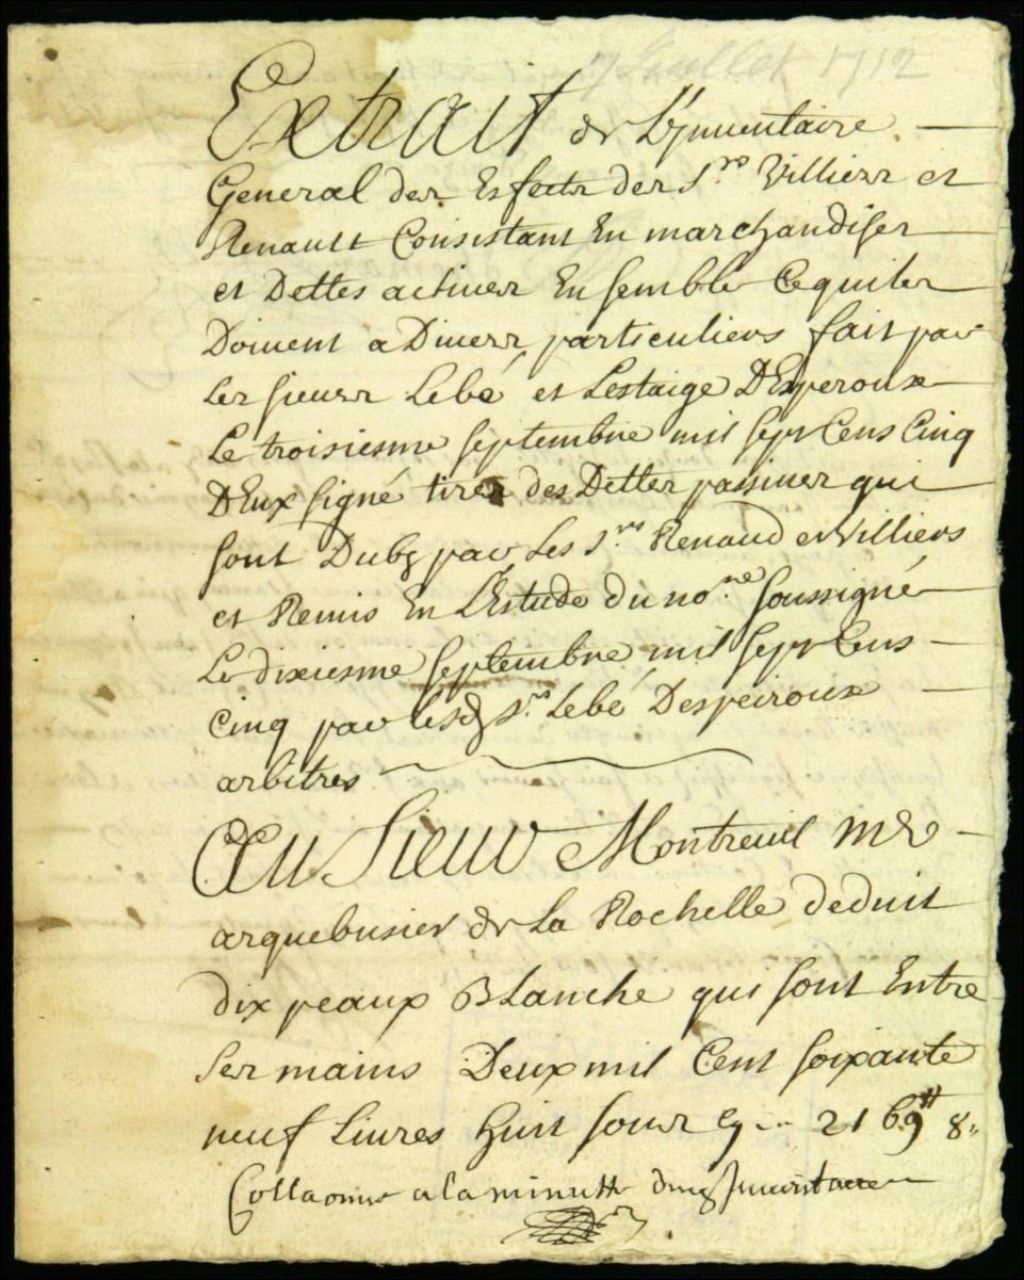 7 Juillet 1712
Extrait de L'ynuentaire
General des Esfects des Srs Villiers et
Renault Consistant En marchandises
et Dettes actiues Ensemble Cequiles
Doiuent a Diuers particuliers fait par
les sieurs Lebé et Lestaige DEsperoux
Le troisiesme septembre mil sept Cens Cinq
DEux signé tirés des Dettes passiues qui
sont Dubs par Les Srs Renaud et Villiers
et Remis En LEstude du nore soussigné
Le dixiesme septembre mil sept Cens
Cinq par lesd Srs Lebé Despeiroux
arbitres
Au Sieur Montreuil me
arquebusier de La Rochelle deduit
dix peaux Blanche qui sont Entre
ses mains Deux mil Cent soixante
neuf Liures huit sous cy -- 2169tt 8s
Collaonné a la minutte dud Inuentaire